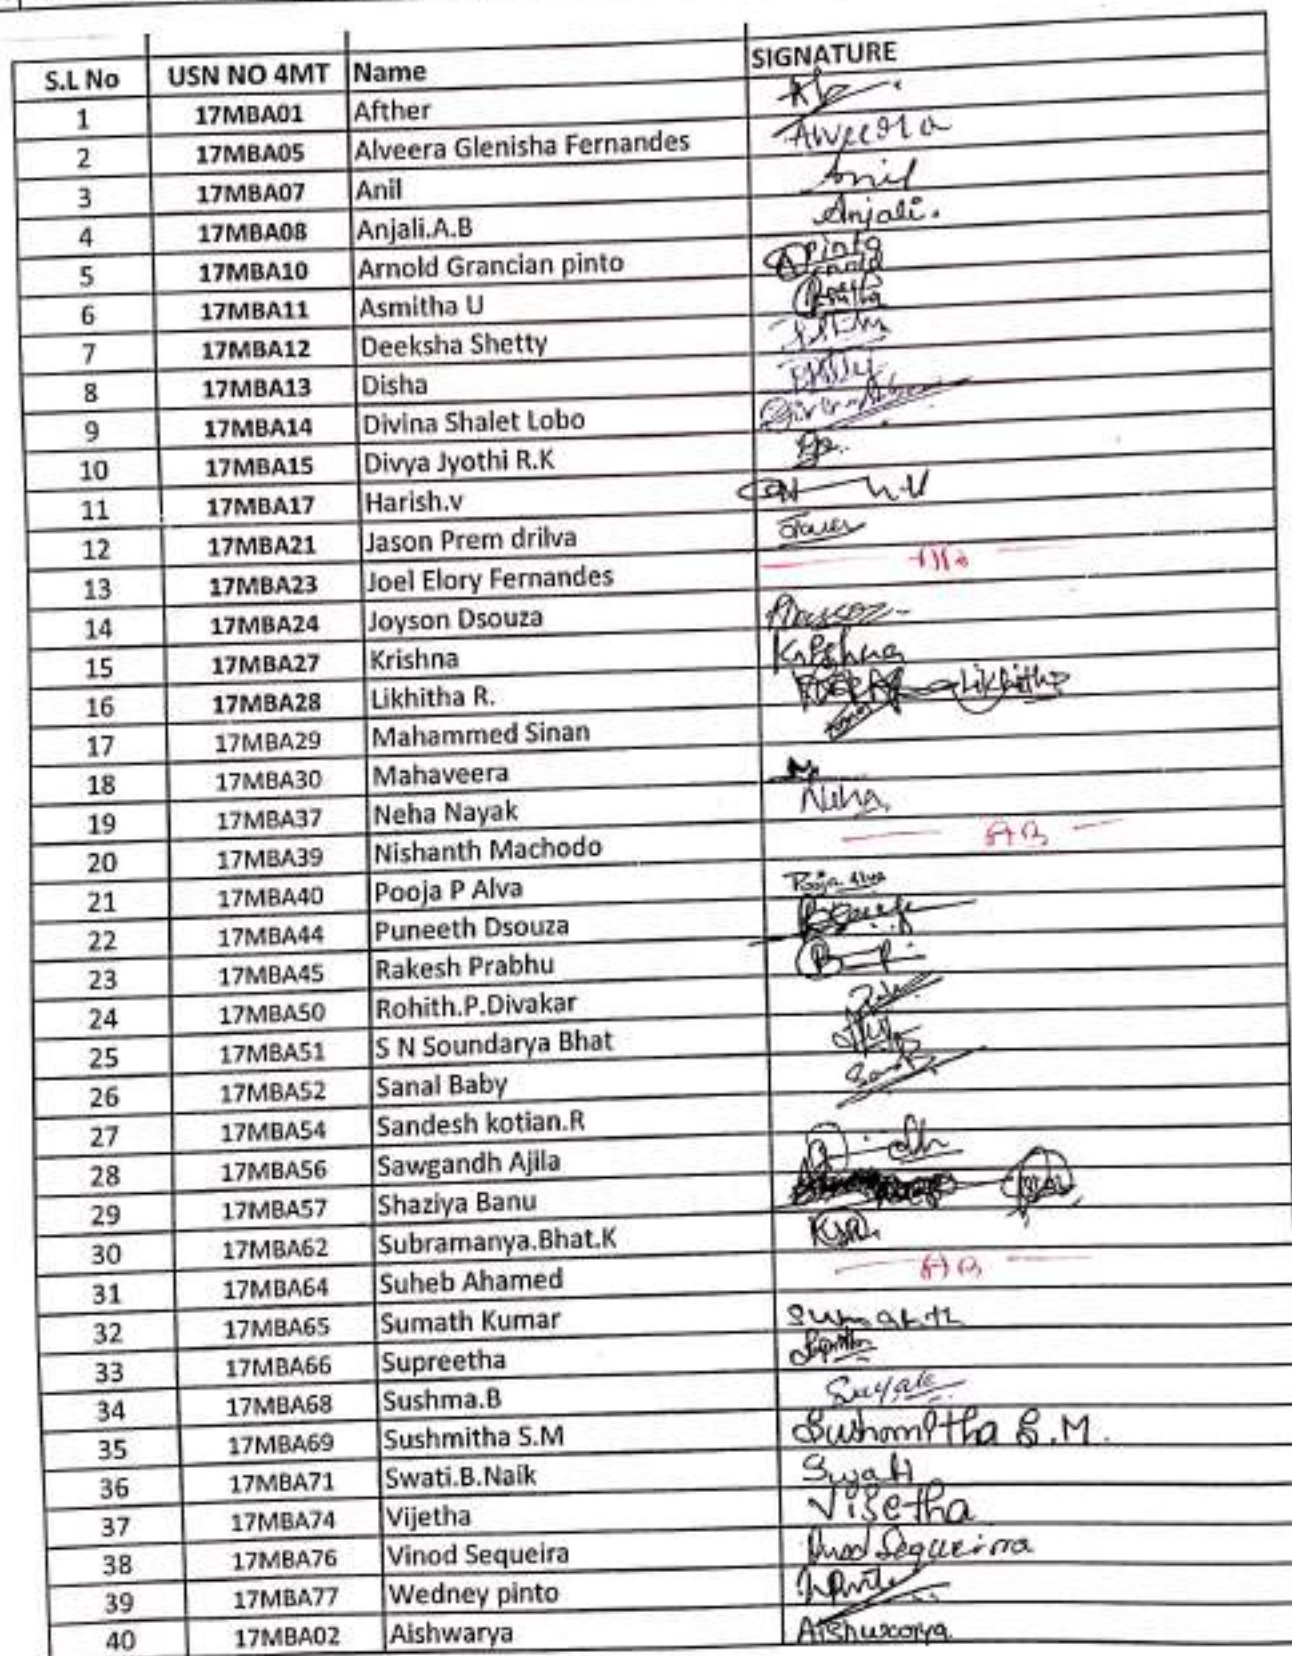 S.L No USN NO 4MT Name SIGNATURE
1 17MBA01 Afther
2 17MBA05 Alveera Glenisha Fernandes Alveera
3 17MBA07 Anil Anil
4 17MBA08 Anjali.A.B Anjali.
5 17MBA10 Arnold Grancian pinto pinto Arnold
6 17MBA11 Asmitha U
7 17MBA12 Deeksha Shetty
8 17MBA13 Disha
9 17MBA14 Divina Shalet Lobo
10 17MBA15 Divya Jyothi R.K
11 17MBA17 Harish.v
12 17MBA21 Jason Prem drilva
13 17MBA23 Joel Elory Fernandes
14 17MBA24 Joyson Dsouza
15 17MBA27 Krishna Krishna
16 17MBA28 Likhitha R. Likhitha
17 17MBA29 Mahammed Sinan
18 17MBA30 Mahaveera
19 17MBA37 Neha Nayak Neha
20 17MBA39 Nishanth Machodo AB
21 17MBA40 Pooja P Alva Pooja Alva
22 17MBA44 Puneeth Dsouza
23 17MBA45 Rakesh Prabhu
24 17MBA50 Rohith.P.Divakar
25 17MBA51 S N Soundarya Bhat
26 17MBA52 Sanal Baby
27 17MBA54 Sandesh kotian.R
28 17MBA56 Sawgandh Ajila
29 17MBA57 Shaziya Banu
30 17MBA62 Subramanya.Bhat.K
31 17MBA64 Suheb Ahamed AB
32 17MBA65 Sumath Kumar
33 17MBA66 Supreetha
34 17MBA68 Sushma.B
35 17MBA69 Sushmitha S.M Sushmitha S.M.
36 17MBA71 Swati.B.Naik
37 17MBA74 Vijetha Vijetha
38 17MBA76 Vinod Sequeira Vinod Sequeira
39 17MBA77 Wedney pinto
40 17MBA02 Aishwarya Aishwarya